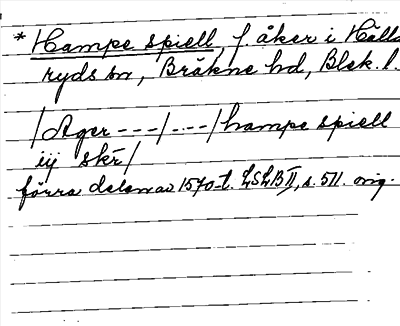 * Hampe spiell, f. åker i Hälla
ryds sn, Bräkne hd, Blek. l.
/Ager - - - / - - - / hampe spiell
iij skr/
förra delen av 1570-t. LSLB II, s. 511. orig.